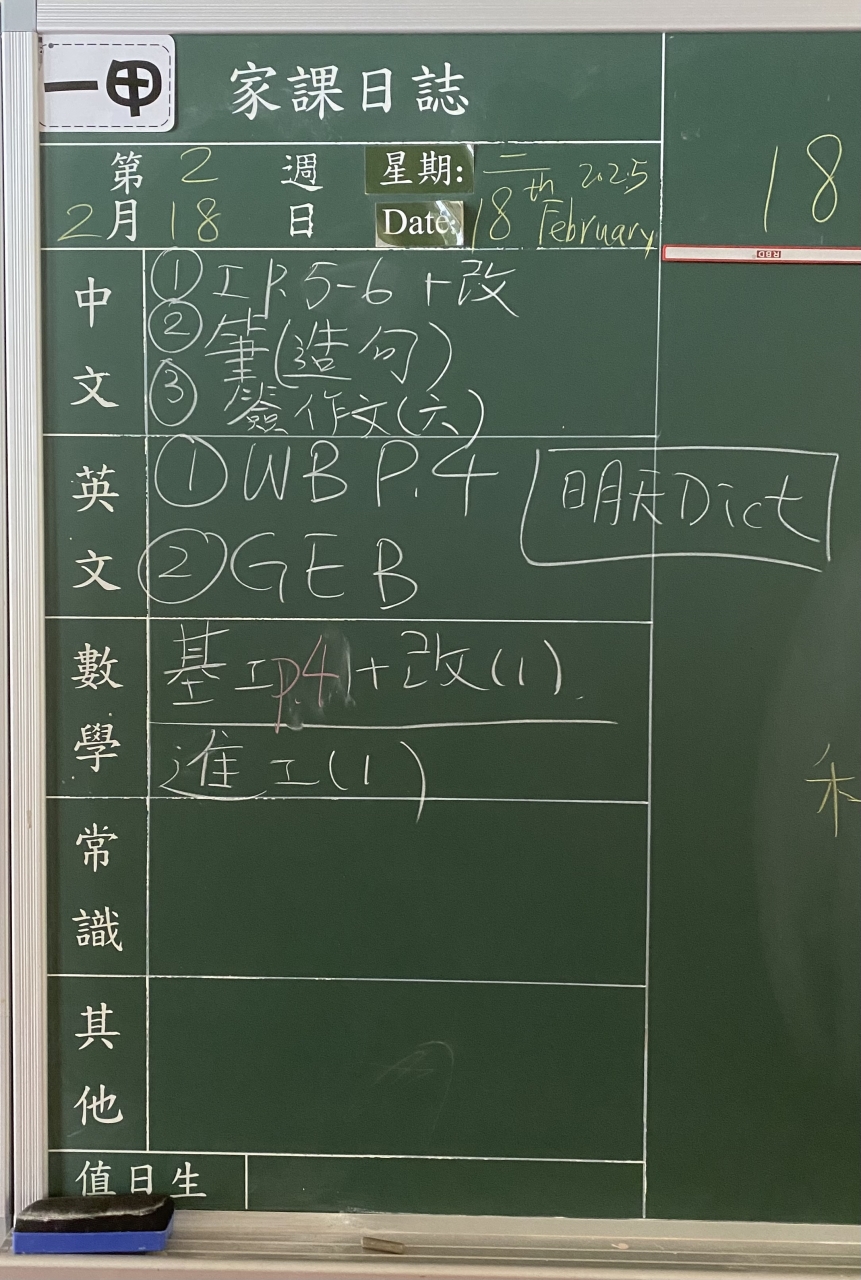 一甲 家課日誌
第 2 週 星期: 二 2025
2月 18 日 Date: 18th February
18
RBD
中文
① 工 P. 5-6 +改
② 筆(造句)
③ 簽作文(六)
英文
① WB P.4
② GEB
明天Dict
數學
基工p.4+改(1).
進工(1)
常識
其他
值日生